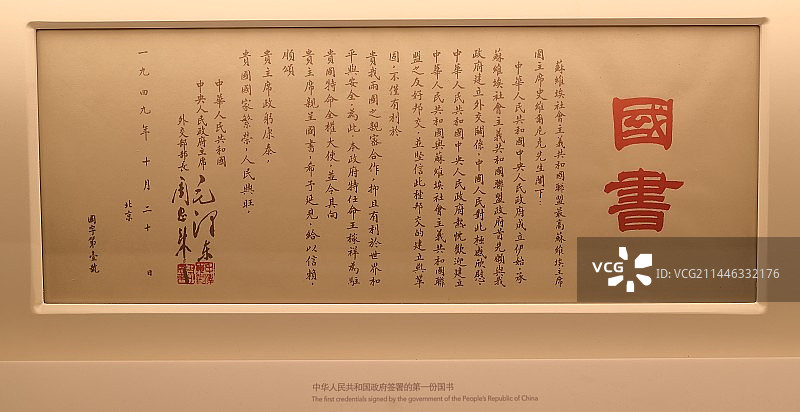 國書
蘇維埃社會主義共和國聯盟最高蘇維埃主席
團主席史維爾尼克先生閣下：
中華人民共和國中央人民政府成立伊始，承
蘇維埃社會主義共和國聯盟政府首先願與我
政府建立外交關係，中國人民對此極感欣慰。
中華人民共和國中央人民政府熱忱歡迎建立
中華人民共和國與蘇維埃社會主義共和國聯
盟之友好邦交，並堅信此種邦交的建立與鞏
固，不僅有利於
貴我兩國之親密合作，抑且有利於世界和
平與安全。為此，本政府特任命王稼祥為駐
貴國特命全權大使，並令其向
貴主席親呈國書，希予延見，給以信賴，
順頌
貴主席政躬康泰，
貴國國家繁榮，人民興旺。
中華人民共和國
中央人民政府主席
毛澤東
外交部部長
周恩來
一九四九年十月二十日
北京
國字第壹號
中华人民共和国政府签署的第一份国书
The first credentials signed by the government of the People's Republic of China
VCG
VCG.COM
ID: VCG211446332176